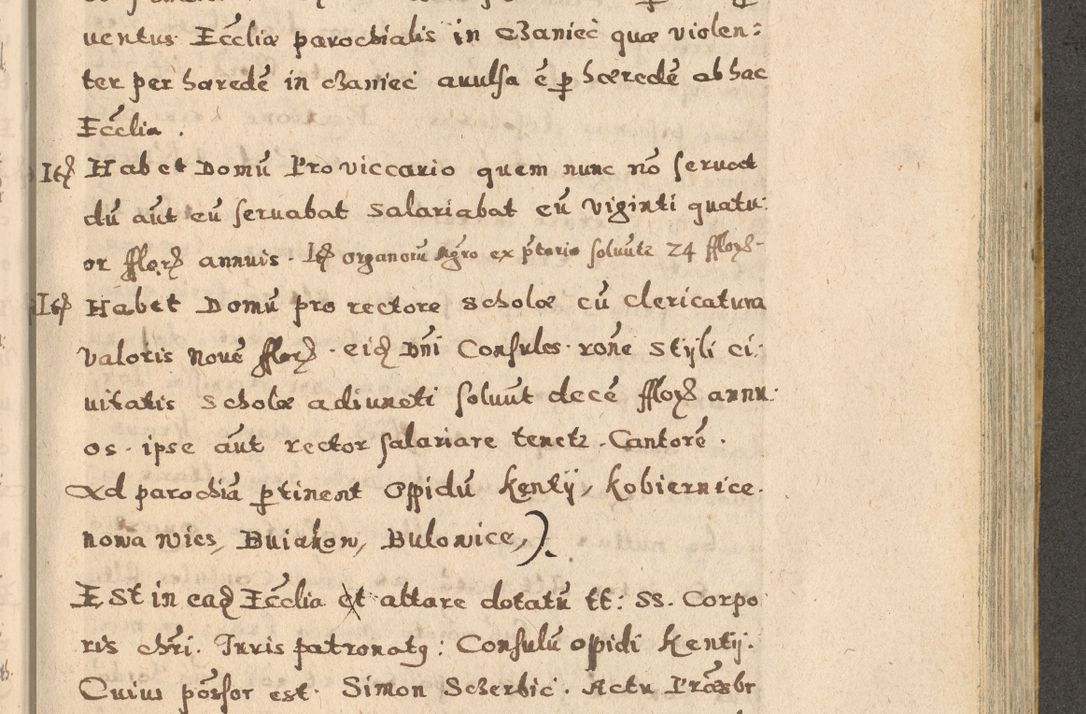 uentus Eccliæ parochialis in Czaniec quæ violen:
ter per hæredē in czaniec auulsa ē ꝑ hæredē ab hac
Ecclia .
Itē Habet Domū Pro viccario quem nunc nō seruat
dū aūt eū seruabat Salariabat eū viginti quatu:
or fflorē annuis . Itē organoriū Ngro ex ꝑterio soluūtz 24 fflorē-
Itē Habet Domū pro rectore scholæ cū clericatura
valoris nouē fflorē . eidē Dn̄i Consules . rōne Styli ci:
uitatis scholæ adiuncti soluūt decē fflorē annu:
os . ipse aūt rector salariare tenetz . Cantorē .
Ad parochiā ꝑtinent Oppidū Kenty, Kobiernice.
nowa wies, Buiakow, Bulowice,).
Est in eadē Ecclia et altare dotatū tt: SS. Corpo
ris chri. Iuris patronatꝯ : Consulū oppidi Kentij.
Cuius pōssor est . Simon Sczerbic . Actu Præsbr